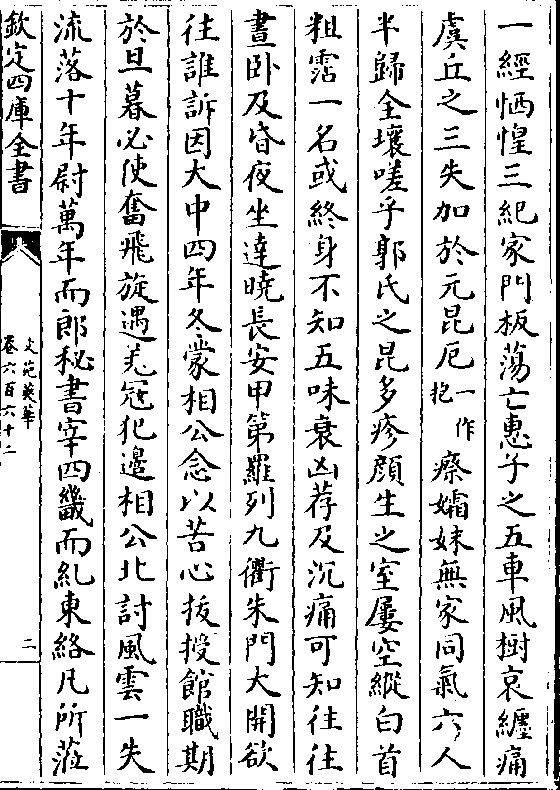 一經恓惶三紀家門板蕩亡惠子之五車風樹哀纏痛
虞丘之三失加於元昆厄一作抱瘵孀妹無家同氣六人
半歸全壤嗟乎郭氏之昆多疹顔生之室屢空縱白首
粗霑一名或終身不知五味衰凶荐及沉痛可知往往
晝卧及昏夜坐達曉長安甲第羅列九衢朱門大開欲
往誰訴因大中四年冬蒙相公念以苦心拔授館職期
於旦暮必使奮飛旋遇羌冦犯邊相公北討風雲一失
流落十年尉萬年而郎秘書宰四畿而糺東絡凡所蒞
欽定四庫全書
文苑英華
卷六百六十二
二